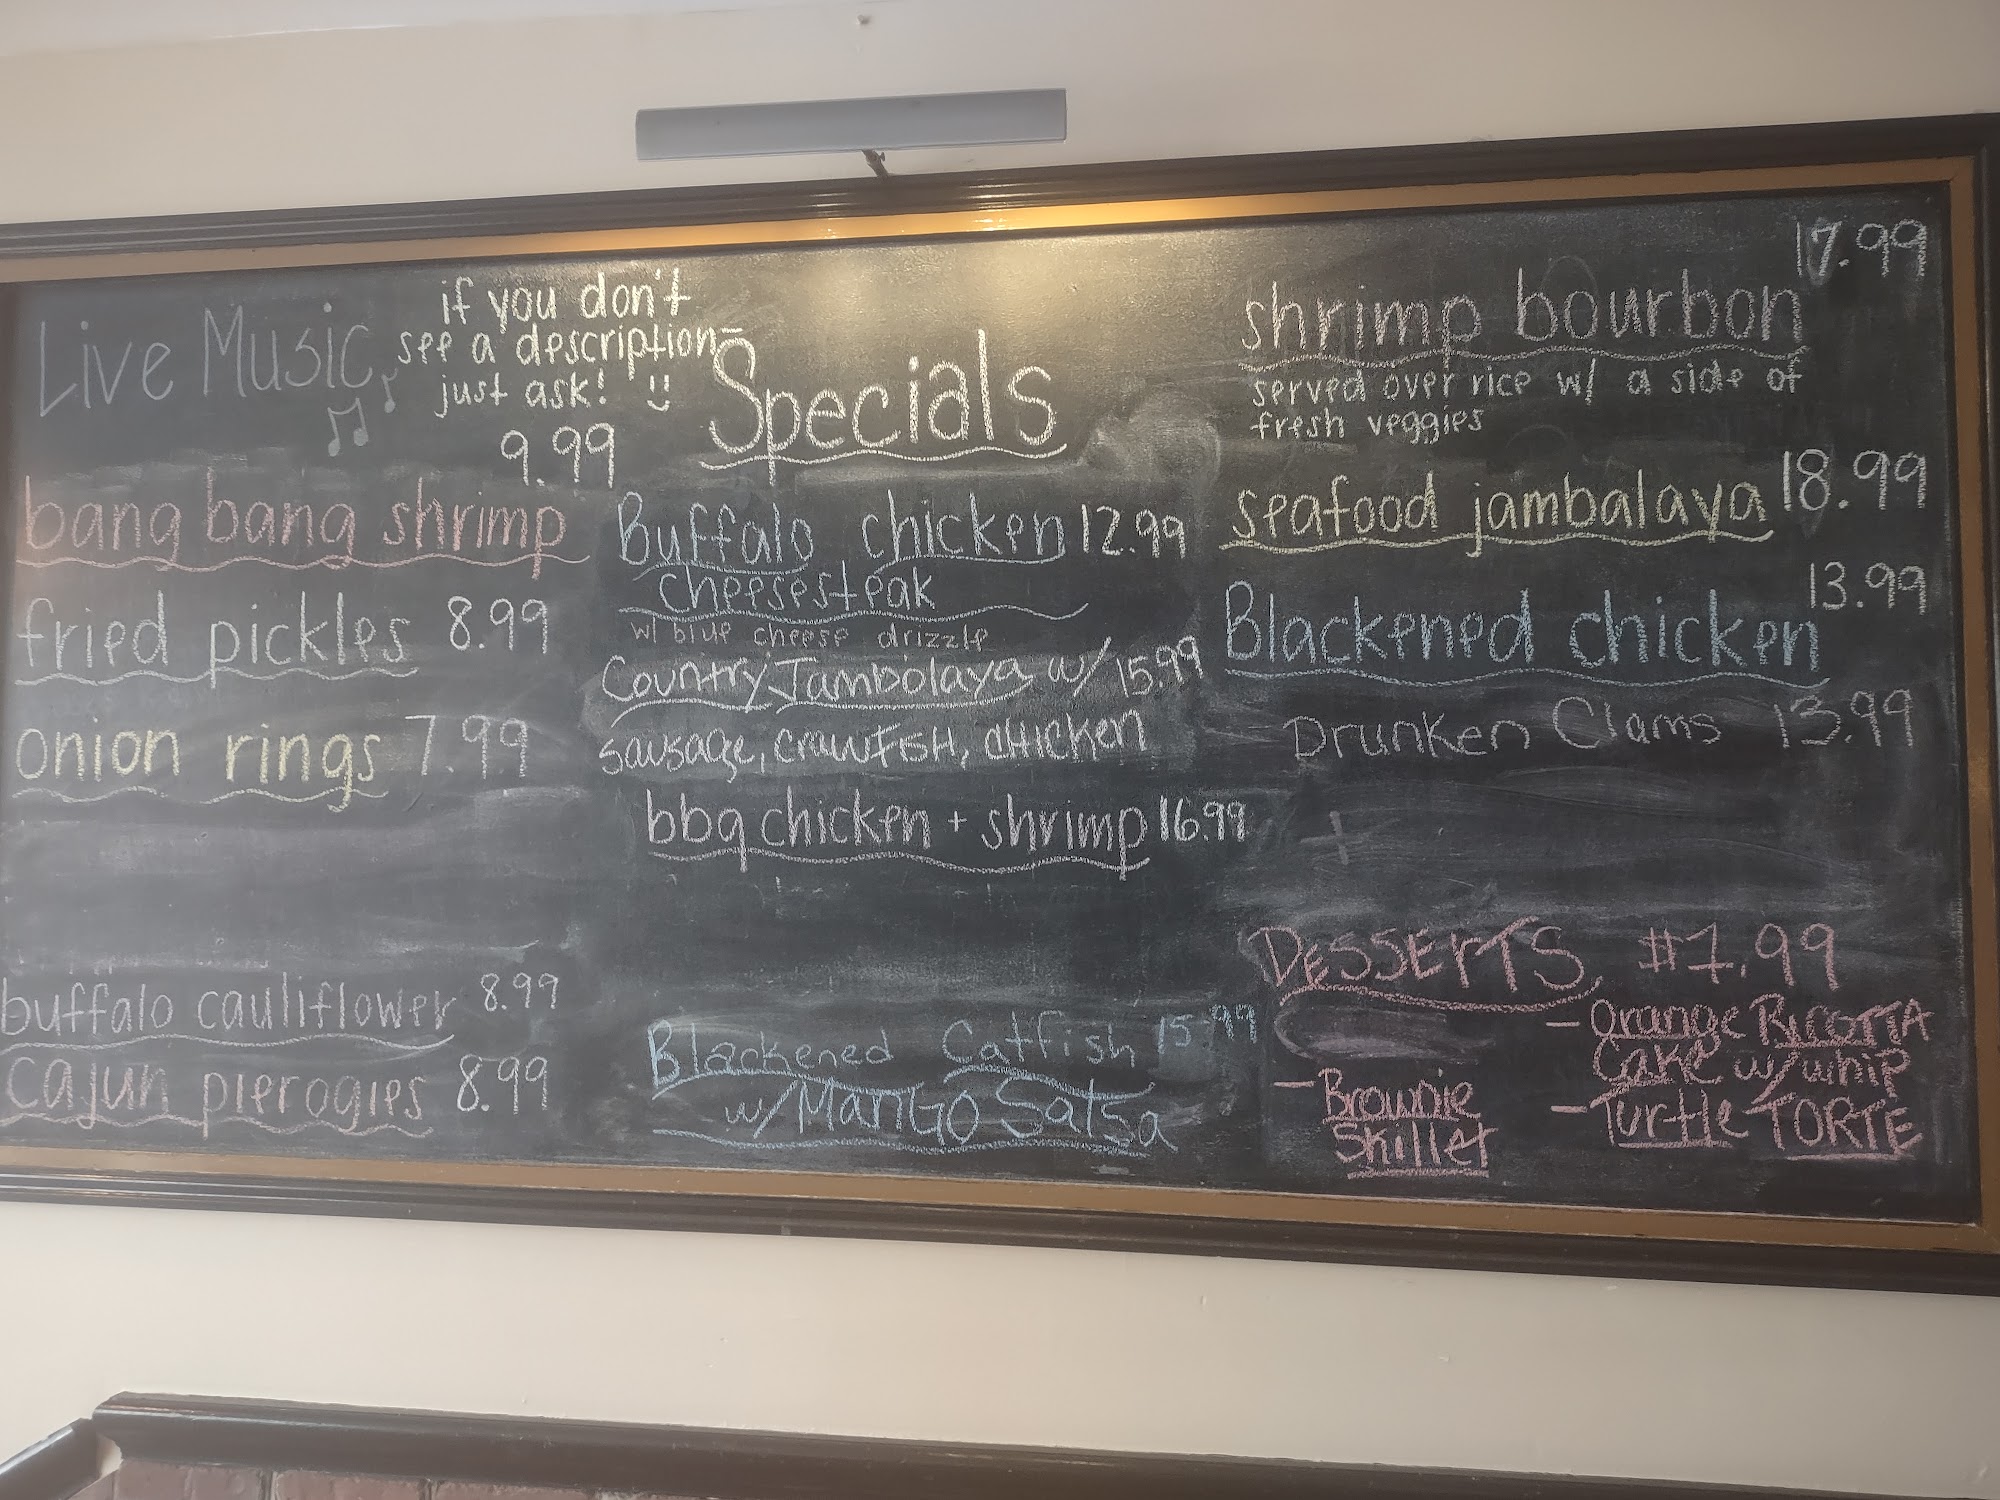 Live Music
if you don't
see a description
just ask! :)
Specials
9.99
bang bang shrimp
fried pickles 8.99
onion rings 7.99
buffalo cauliflower 8.99
cajun pierogies 8.99
Buffalo chicken 12.99
cheesesteak
w/ blue cheese drizzle
Country Jambolaya w/ 15.99
sausage, crawfish, chicken
bbq chicken + shrimp 16.99
Blackened Catfish 15.99
w/ Mango Salsa
17.99
shrimp bourbon
served over rice w/ a side of
fresh veggies
seafood jambalaya 18.99
13.99
Blackened chicken
Drunken Clams 13.99
DESSERTS $7.99
- Brownie
Skillet
- Orange RICOTTA
Cake w/ whip
- Turtle TORTE